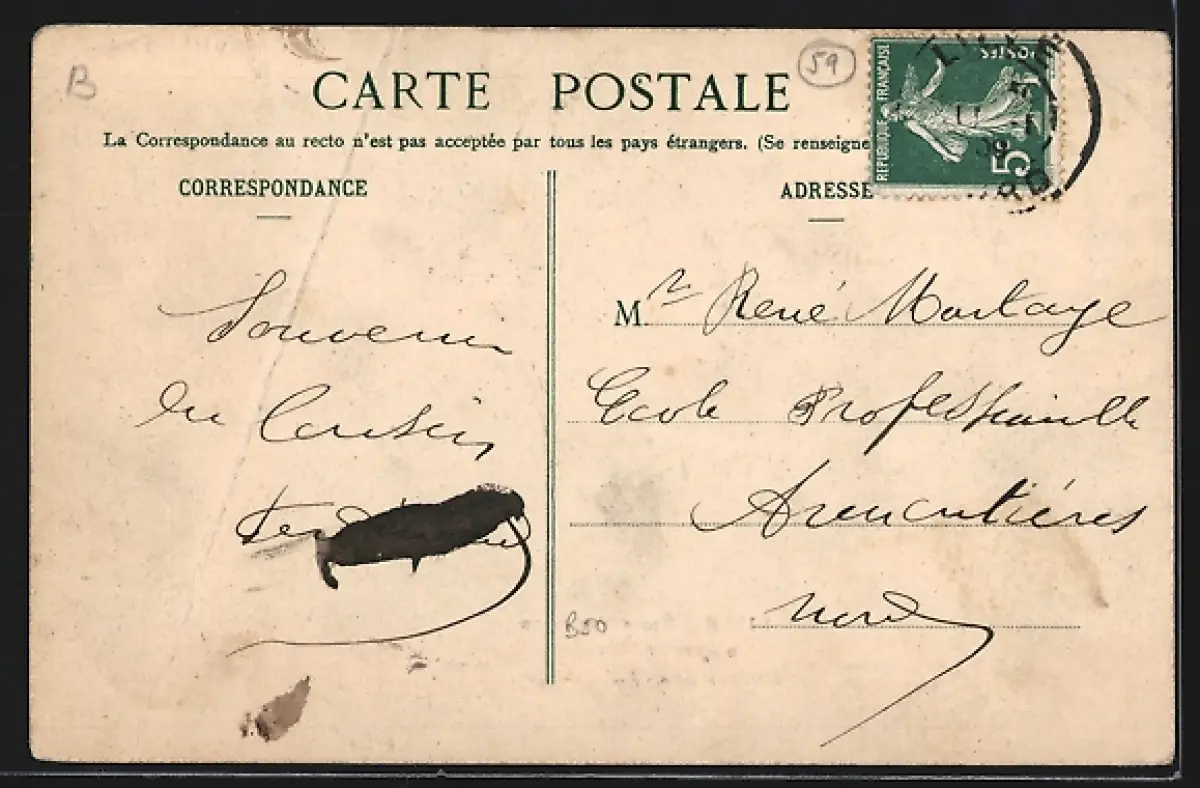 B
59
CARTE POSTALE
La Correspondance au recto n'est pas acceptée par tous les pays étrangers. (Se renseigne
CORRESPONDANCE
ADRESSE
REPUBLIQUE FRANÇAISE
POSTES
5
Souvenir
du Cousin
M.r René Montaye
Ecole Professionnelle
Armentières
Nord
B50